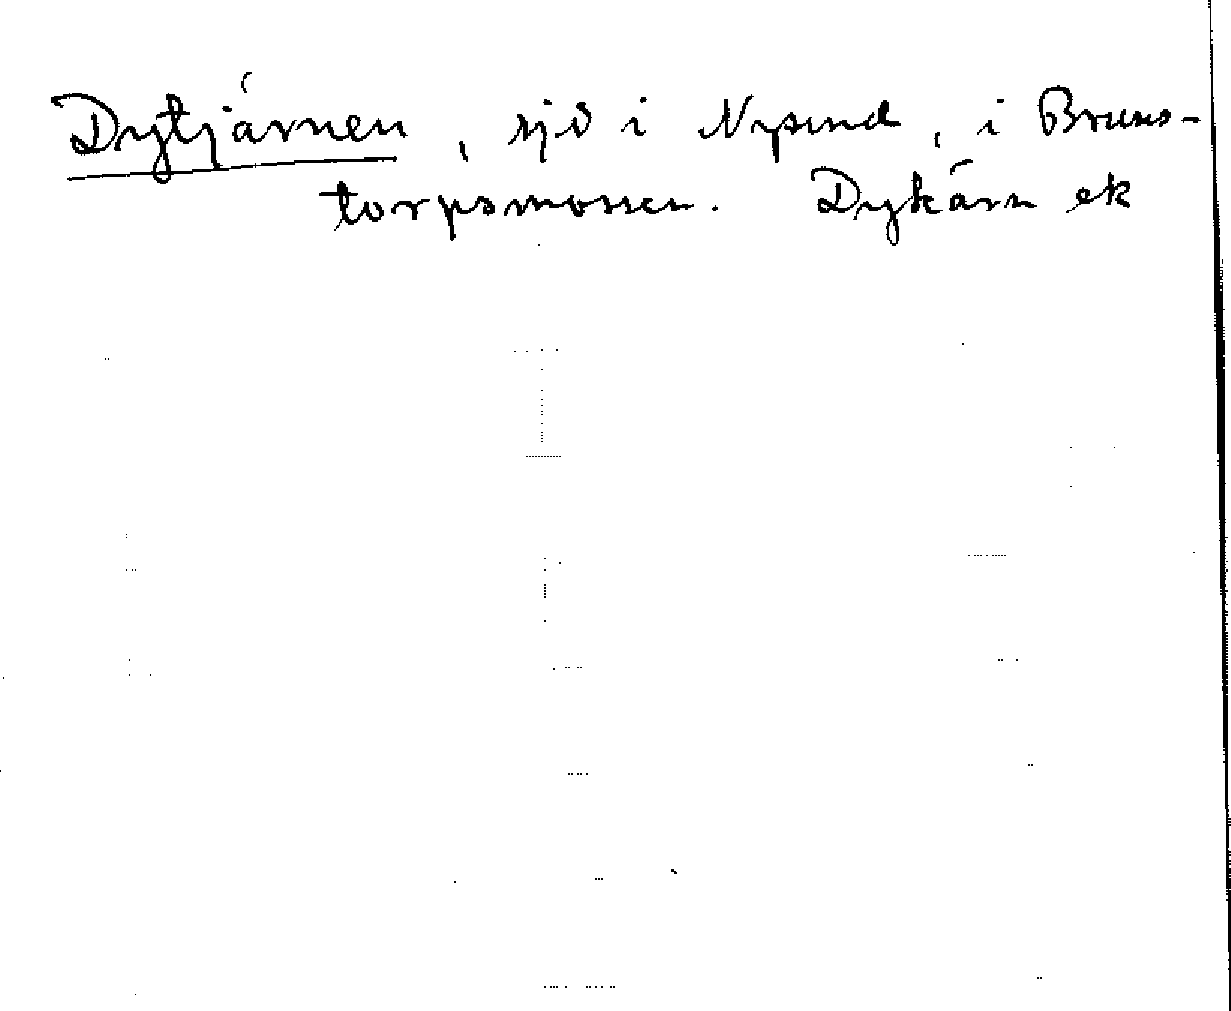 Dytjärnen, sjö i Nysund, i Bruns-
torpsmossen. Dykärn ek